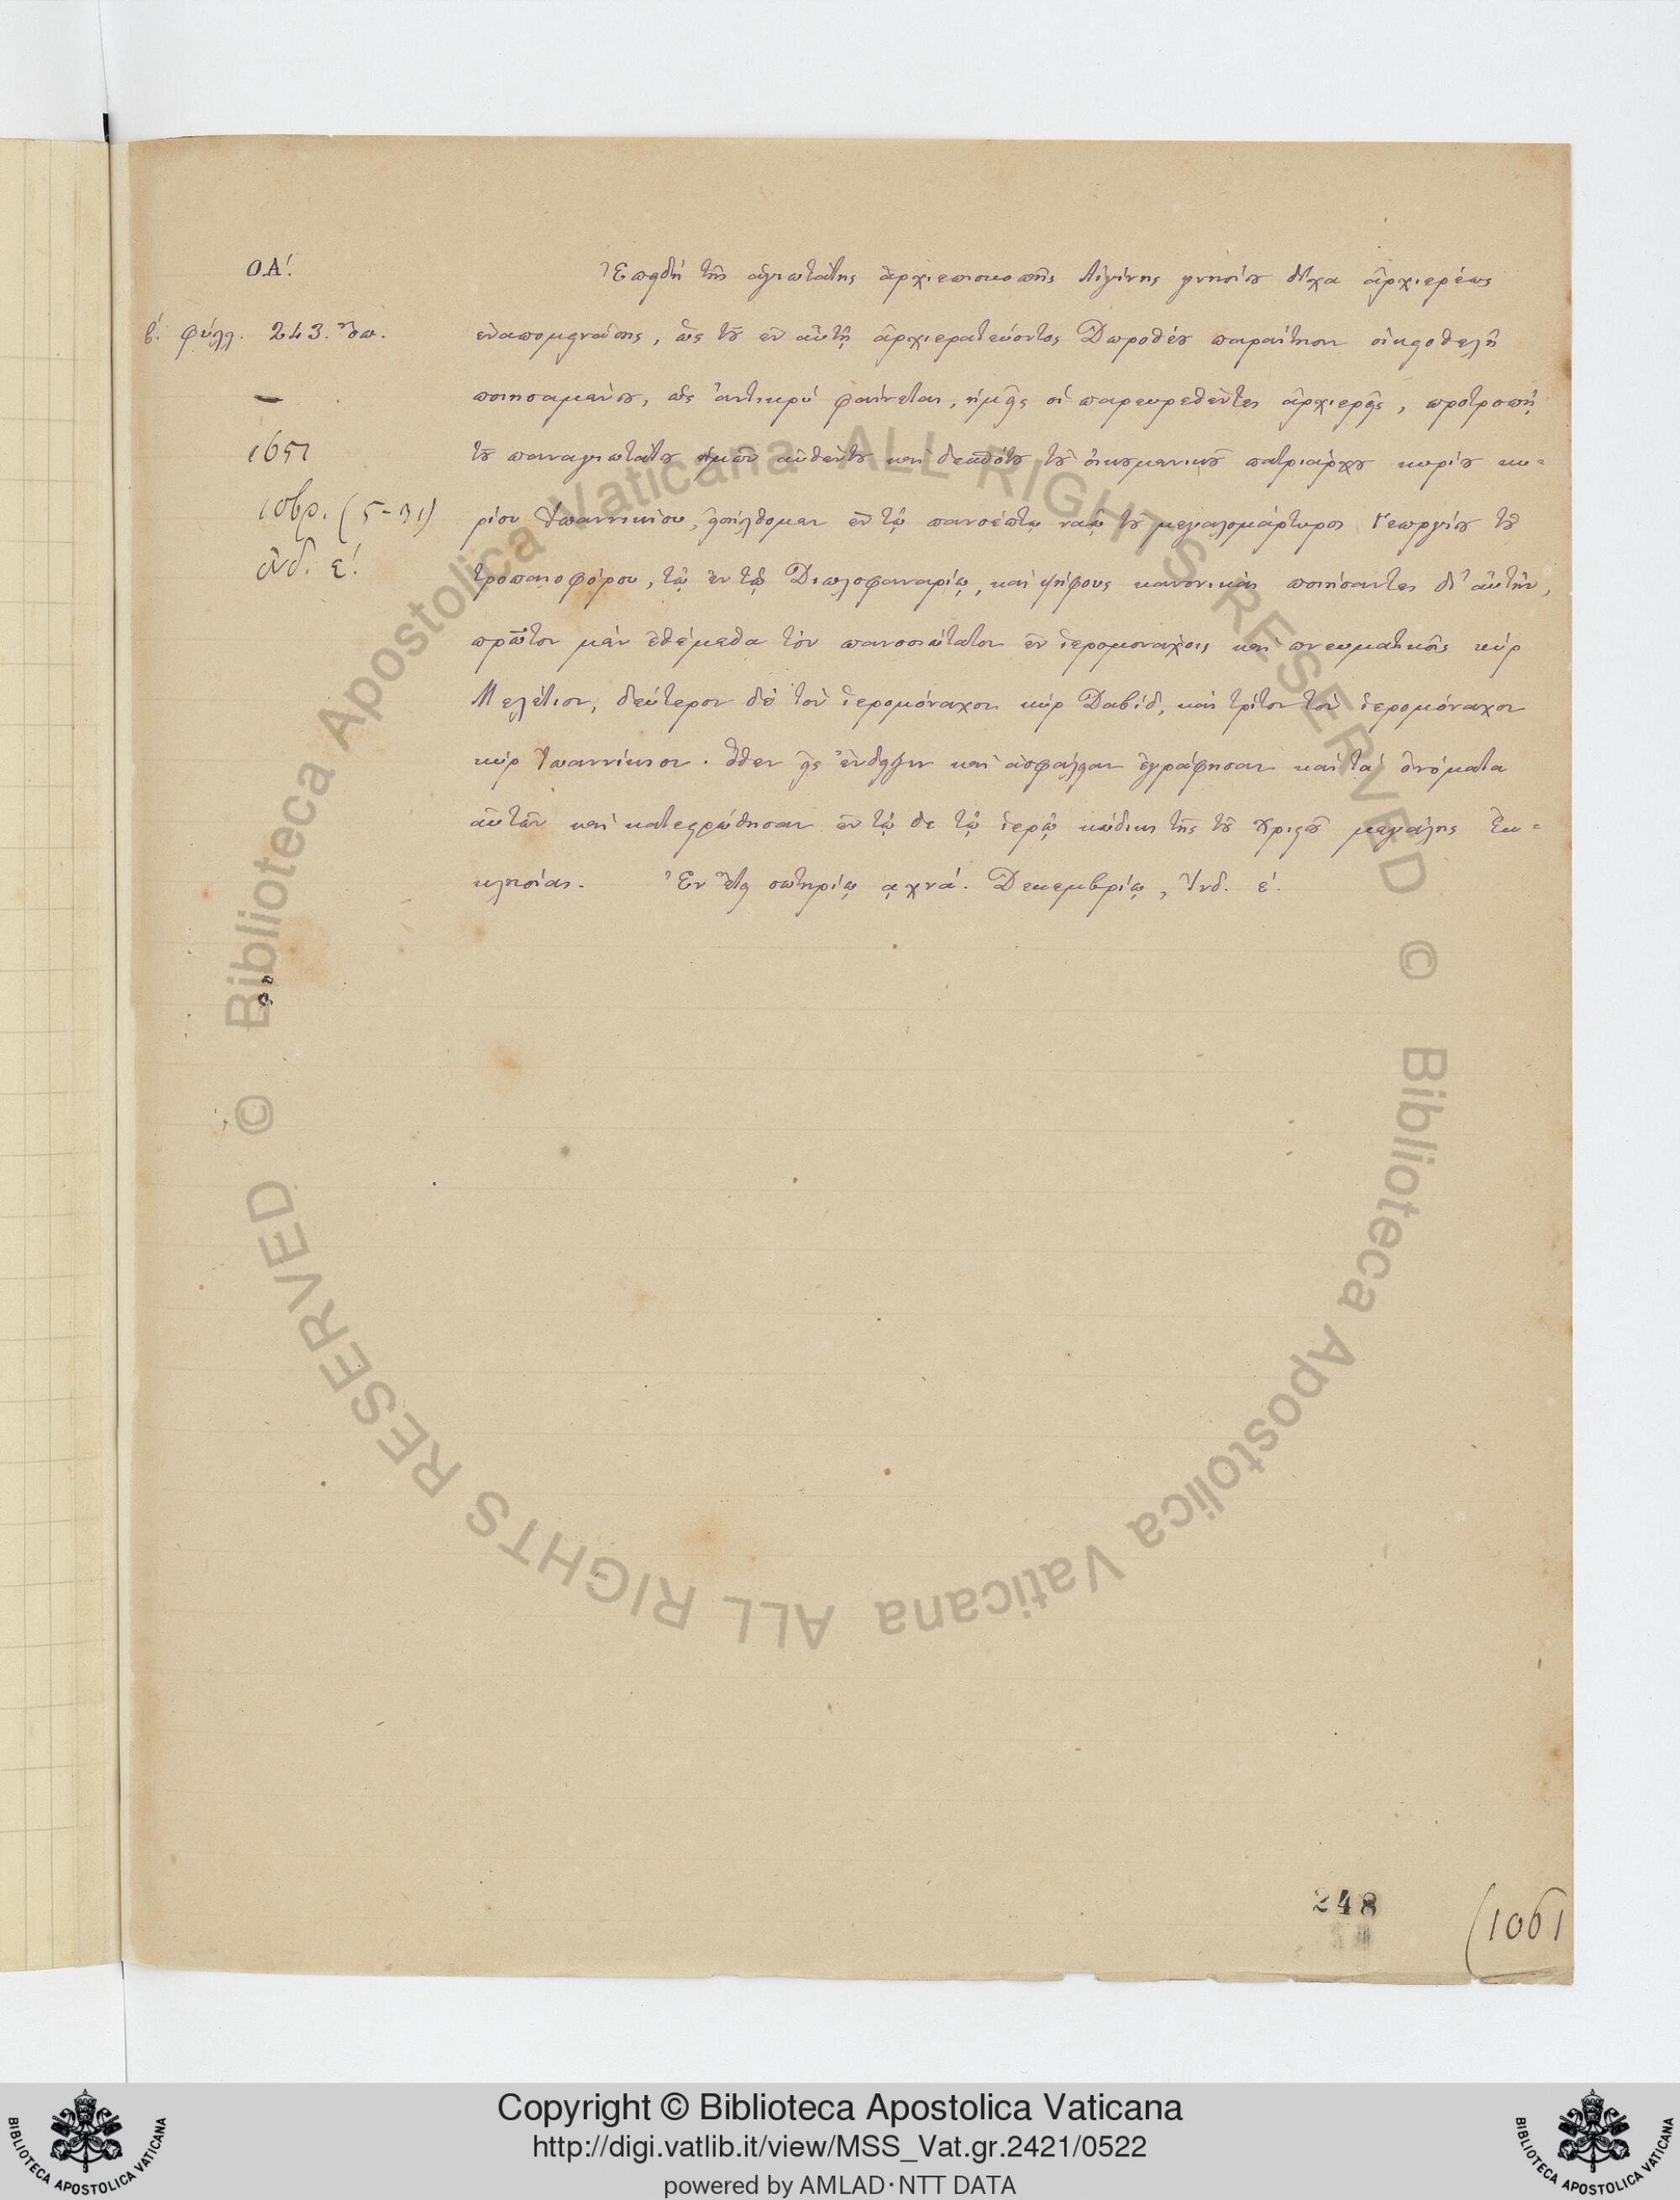 ΟΑ΄.
β΄. φύλλ. 243.
—
1651
10βρ. (5-31)
ἰνδ. ε΄.
Ἐπειδὴ τῆς ἁγιωτάτης ἀρχιεπισκοπῆς Αἰγίνης γνησίου δίχα ἀρχιερέως
ἐναπομεινάσης, ὡς τοῦ ἐν αὐτῇ ἀρχιερατεύοντος Δωροθέου παραίτησιν οἰκιοθελῆ
ποιησαμένου, ὡς ἀντικρὺ φαίνεται, ἡμεῖς οἱ παρευρεθέντες ἀρχιερεῖς, προτροπῇ
τοῦ παναγιωτάτου ἡμῶν αὐθέντου καὶ δεσπότου τοῦ οἰκουμενικοῦ πατριάρχου κυρίου κυ-
ρίου Ἰωαννικίου, εἰσήλθομεν ἐν τῷ πανσέπτῳ ναῷ τοῦ μεγαλομάρτυρος Γεωργίου τοῦ
τροπαιοφόρου, τῷ ἐν τῷ Διπλοφαναρίῳ, καὶ ψήφους κανονικὰς ποιήσαντες δι' αὐτήν,
πρῶτον μὲν ἐθέμεθα τὸν πανοσιώτατον ἐν ἱερομονάχοις καὶ πνευματικοῖς κὺρ
Μελέτιον, δεύτερον δὲ τὸν ἱερομόναχον κὺρ Δαβίδ, καὶ τρίτον τὸν ἱερομόναχον
κὺρ Ἰωαννίκιον. ὅθεν εἰς ἔνδειξιν καὶ ἀσφάλειαν ἐγράφησαν καὶ τὰ ὀνόματα
αὐτῶν καὶ κατεστρώθησαν ἐν τῷδε τῷ ἱερῷ κώδικι τῆς τοῦ Χριστοῦ μεγάλης Ἐκ-
κλησίας. Ἐν ἔτει σωτηρίῳ ͵αχνα΄. Δεκεμβρίῳ, Ἰνδ. ε΄.
248
(1061
Biblioteca Apostolica Vaticana ALL RIGHTS RESERVED ©
Biblioteca Apostolica Vaticana ALL RIGHTS RESERVED ©
Copyright © Biblioteca Apostolica Vaticana
http://digi.vatlib.it/view/MSS_Vat.gr.2421/0522
powered by AMLAD·NTT DATA
BIBLIOTECA APOSTOLICA VATICANA
BIBLIOTECA APOSTOLICA VATICANA